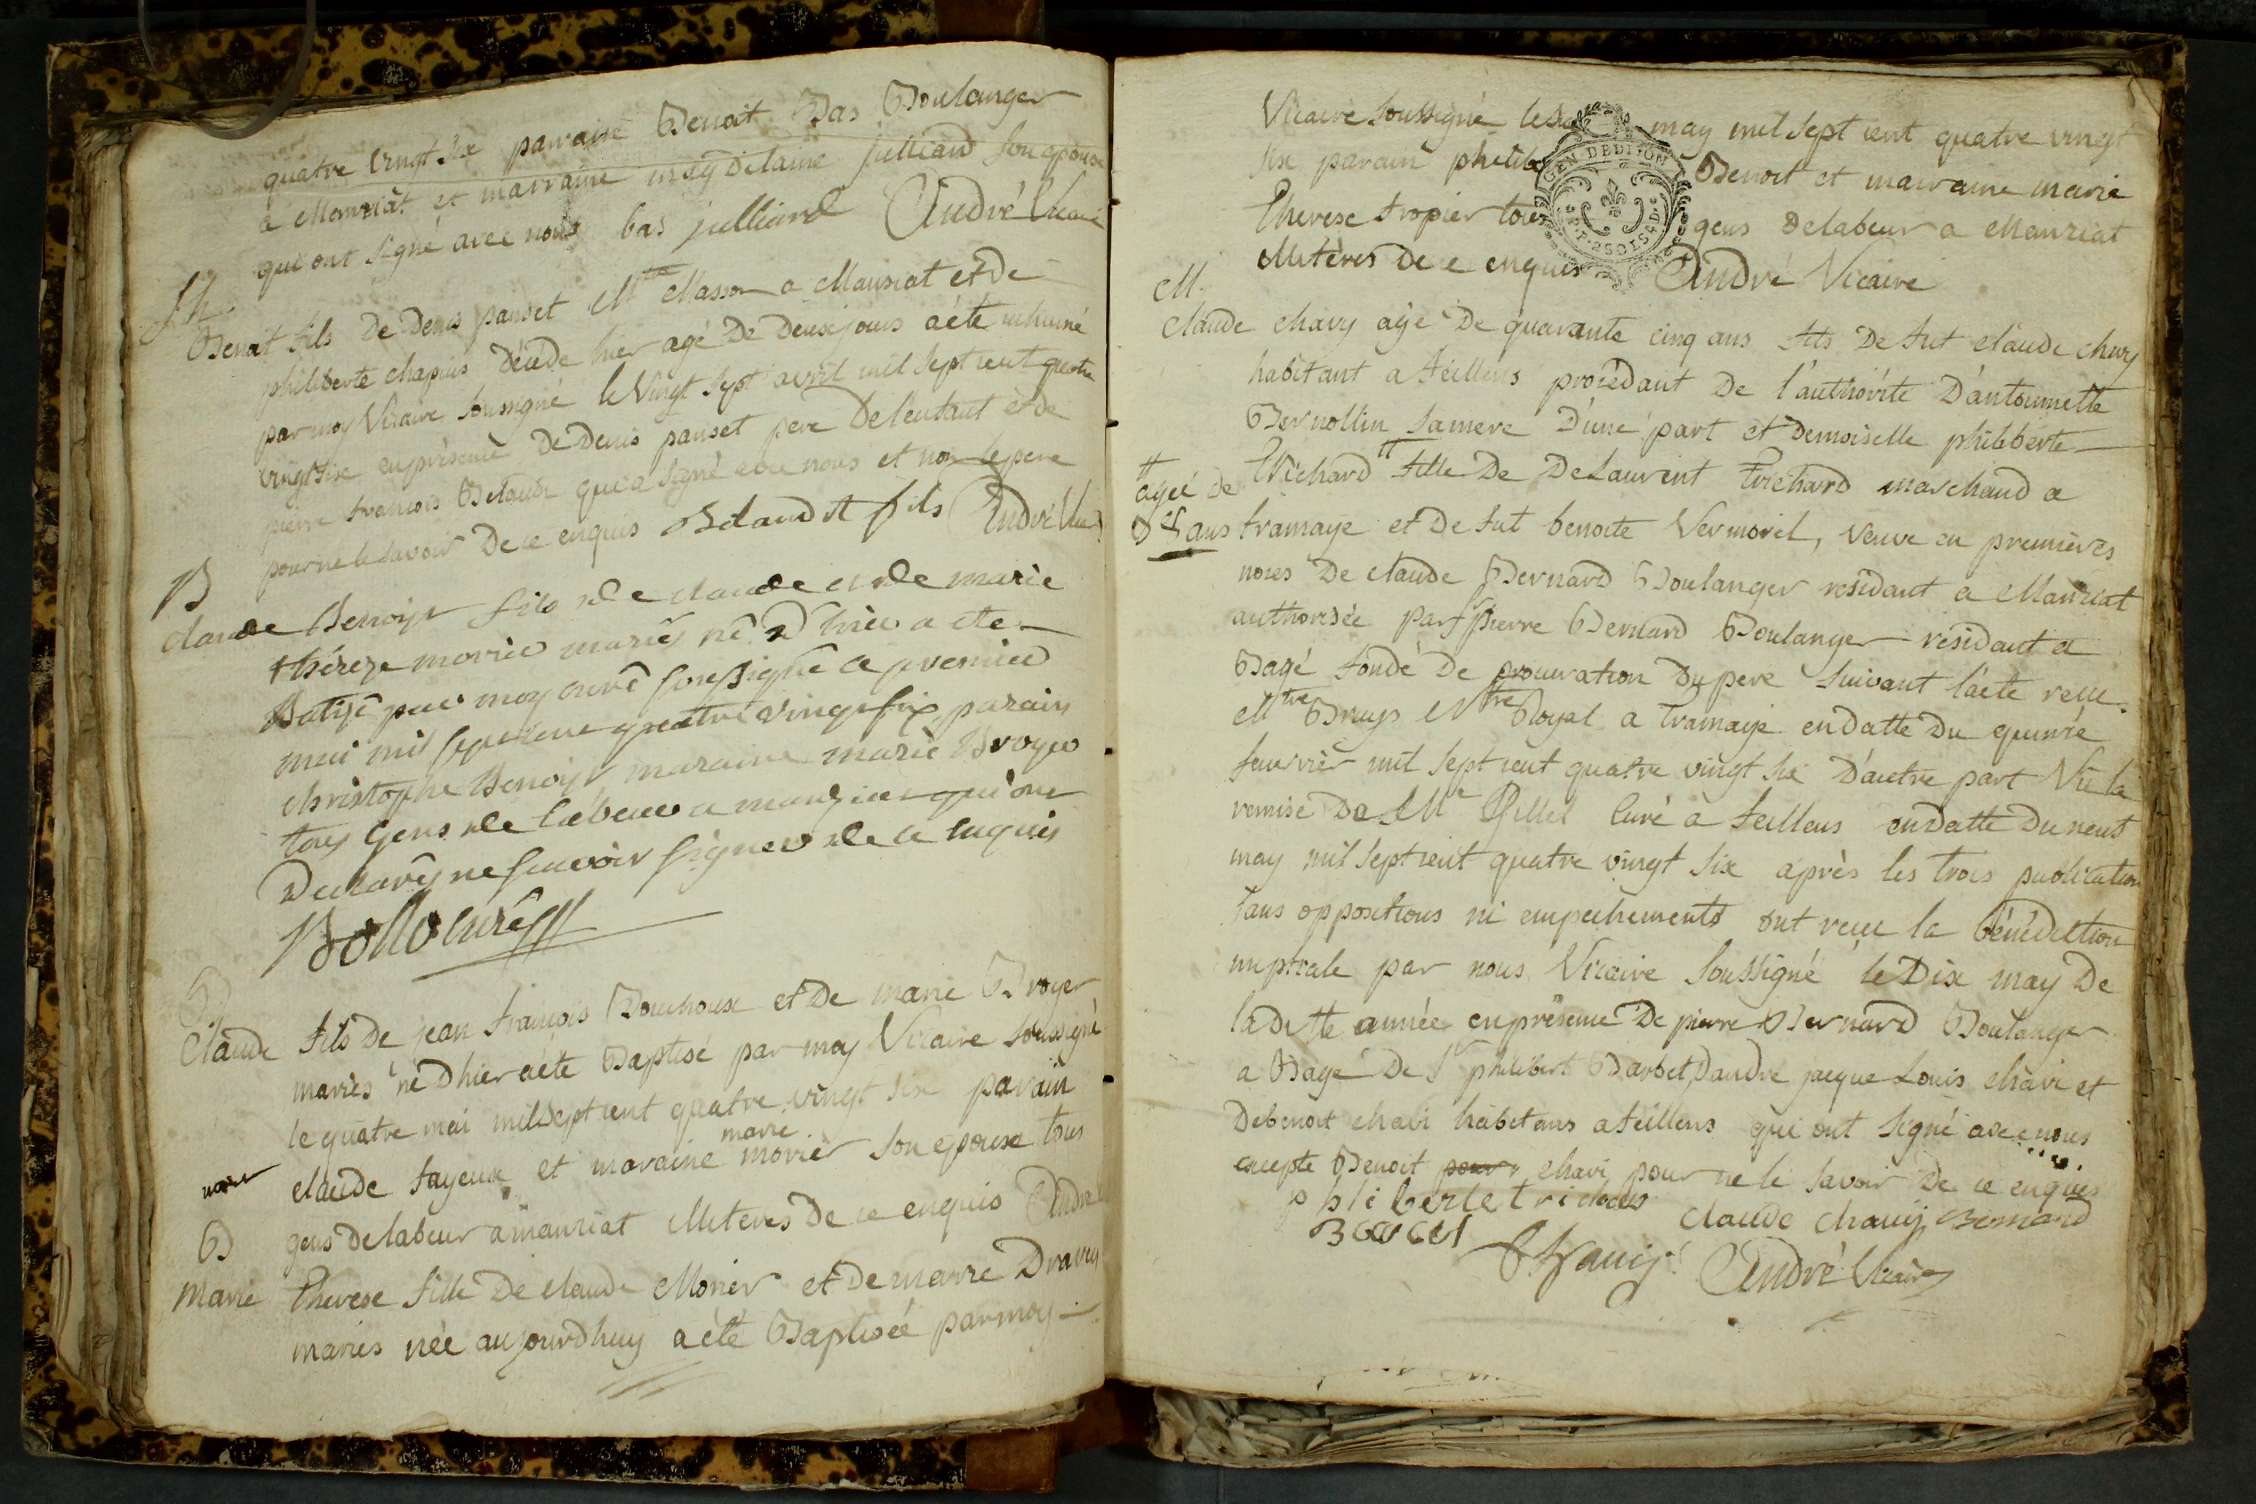 quatre vingt six parain Benoit Bas Boulanger
a Manziat et marraine magdelaine julliand son epouse
qui ont signé avec nous bas julliand André Vicaire
Sh.
Benoit fils de Denis panset Mtre Masson a Manziat et de
philiberte chapuis décédé hier agé de deux jours a été inhumé
par moy Vicaire soussigné le Vingt sept avril mil sept cent quatre
vingt six en présence de Denis panset pere de l'enfant et de
pierre francois Beland qui a signé avec nous et non le pere
pour ne le savoir de ce enquis Beland fils André Vic
B
claude Benoist fils de claude et de marie
thérèze morier mariés né d'hier a été
Batizé par moy curé soussigné ce premier
mai mil sept cent quatre vingt six parain
christophe Benoist maraine marie Broyer
tous gens de labeur a manziat qui ont
declarés ne scavoir signer de ce enquis
Bollo curé
B
Claude fils de jean francois Bouchoux et de marie Broyer
mariés né d'hier a été Baptisé par moy Vicaire soussigné
le quatre mai mil sept cent quatre vingt six parain
marie
claude fayeux et maraine morier son epouse tous
gens de labeur a manziat illiteres de ce enquis André
B
Marie Therese fille de claude Morier et de marie Dravey
mariés née aujourdhuy a été Baptisée par moy
Vicaire soussigné le six may mil sept cent quatre vingt
six parain philib Benoit et marraine marie
Therese tropier tous gens de labeur a Manziat
illitères de ce enquis André Vicaire
GEN DE DIJON
M.
claude chavy agé de quarante cinq ans fils de fut claude chavy
habitant a feillens procédant de l'authorité d'antoinette
Bernollin sa mere d'une part et demoiselle philiberte
Trichard tt fille de De Laurent Trichard marchand a
tt agée de
ans tramaye et de fut benoite Vermorel, veuve en premières
noces de claude Bernard Boulanger residant a Manziat
authorisée par sr pierre Bernard Boulanger residant a
Bagé fondé de procuration du pere suivant l'acte recu
Mtre Bruys Ntre Royal a Tramaye en datte du quinze
feuvrier mil sept cent quatre vingt six d'autre part Vu la
remise de Mr Pillet curé à feillens en datte du neuf
may mil sept cent quatre vingt six après les trois publication
sans oppositions ni empechements ont recu la bénédiction
nuptiale par nous Vicaire soussigné le Dix may de
la ditte année en présence de pierre Bernard Boulanger
a Bagé de sr philibert Barbet, d'andré jacque Louis chavi et
de benoit chavi habitans a feillens qui ont signé avec nous
excepté Benoit pour chavi pour ne le savoir de ce enquis
phliberte trichard
claude chavij Bernard
André Vicaire